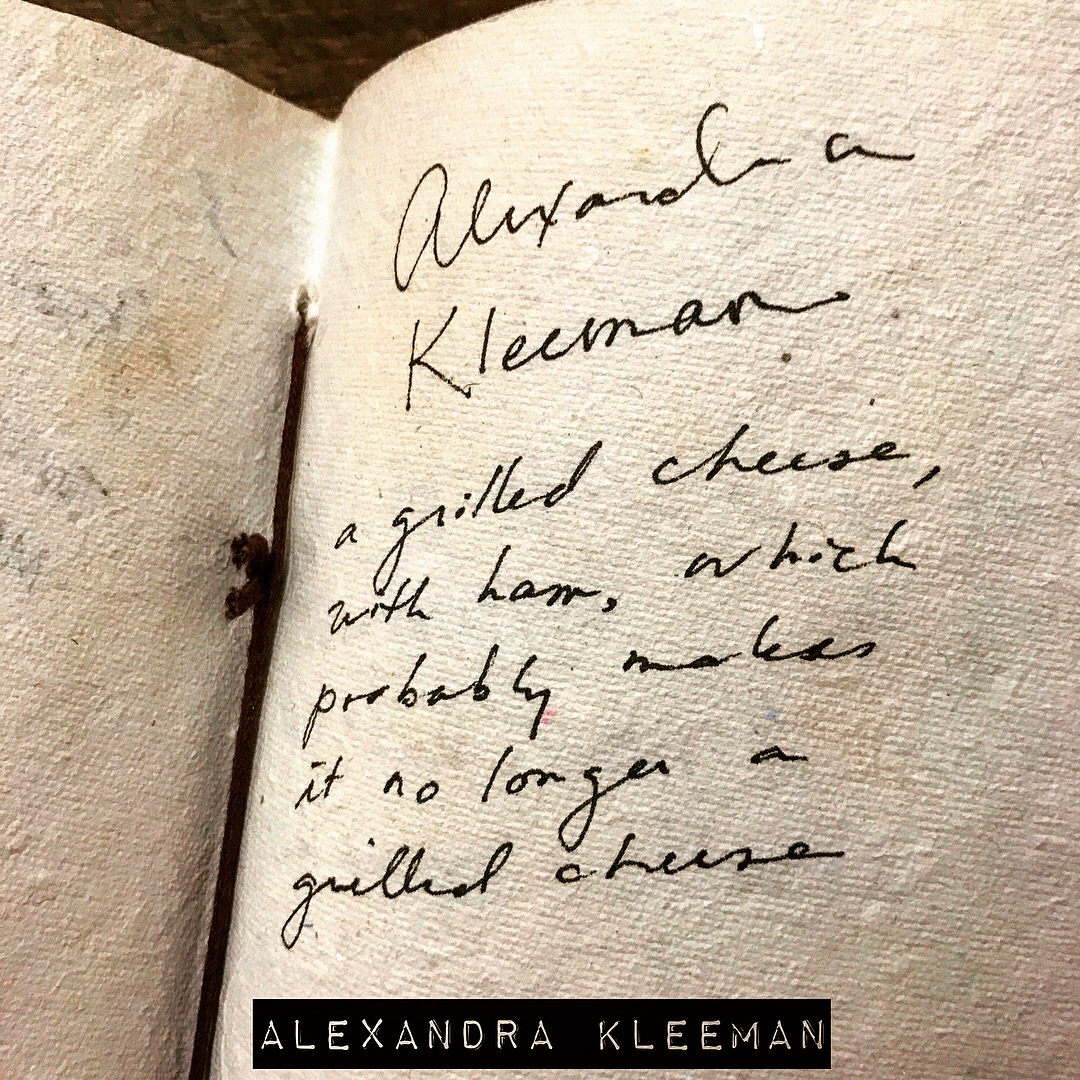 Alexandra
Kleeman
a grilled cheese,
with ham, which
probably makes
it no longer a
grilled cheese
ALEXANDRA KLEEMAN